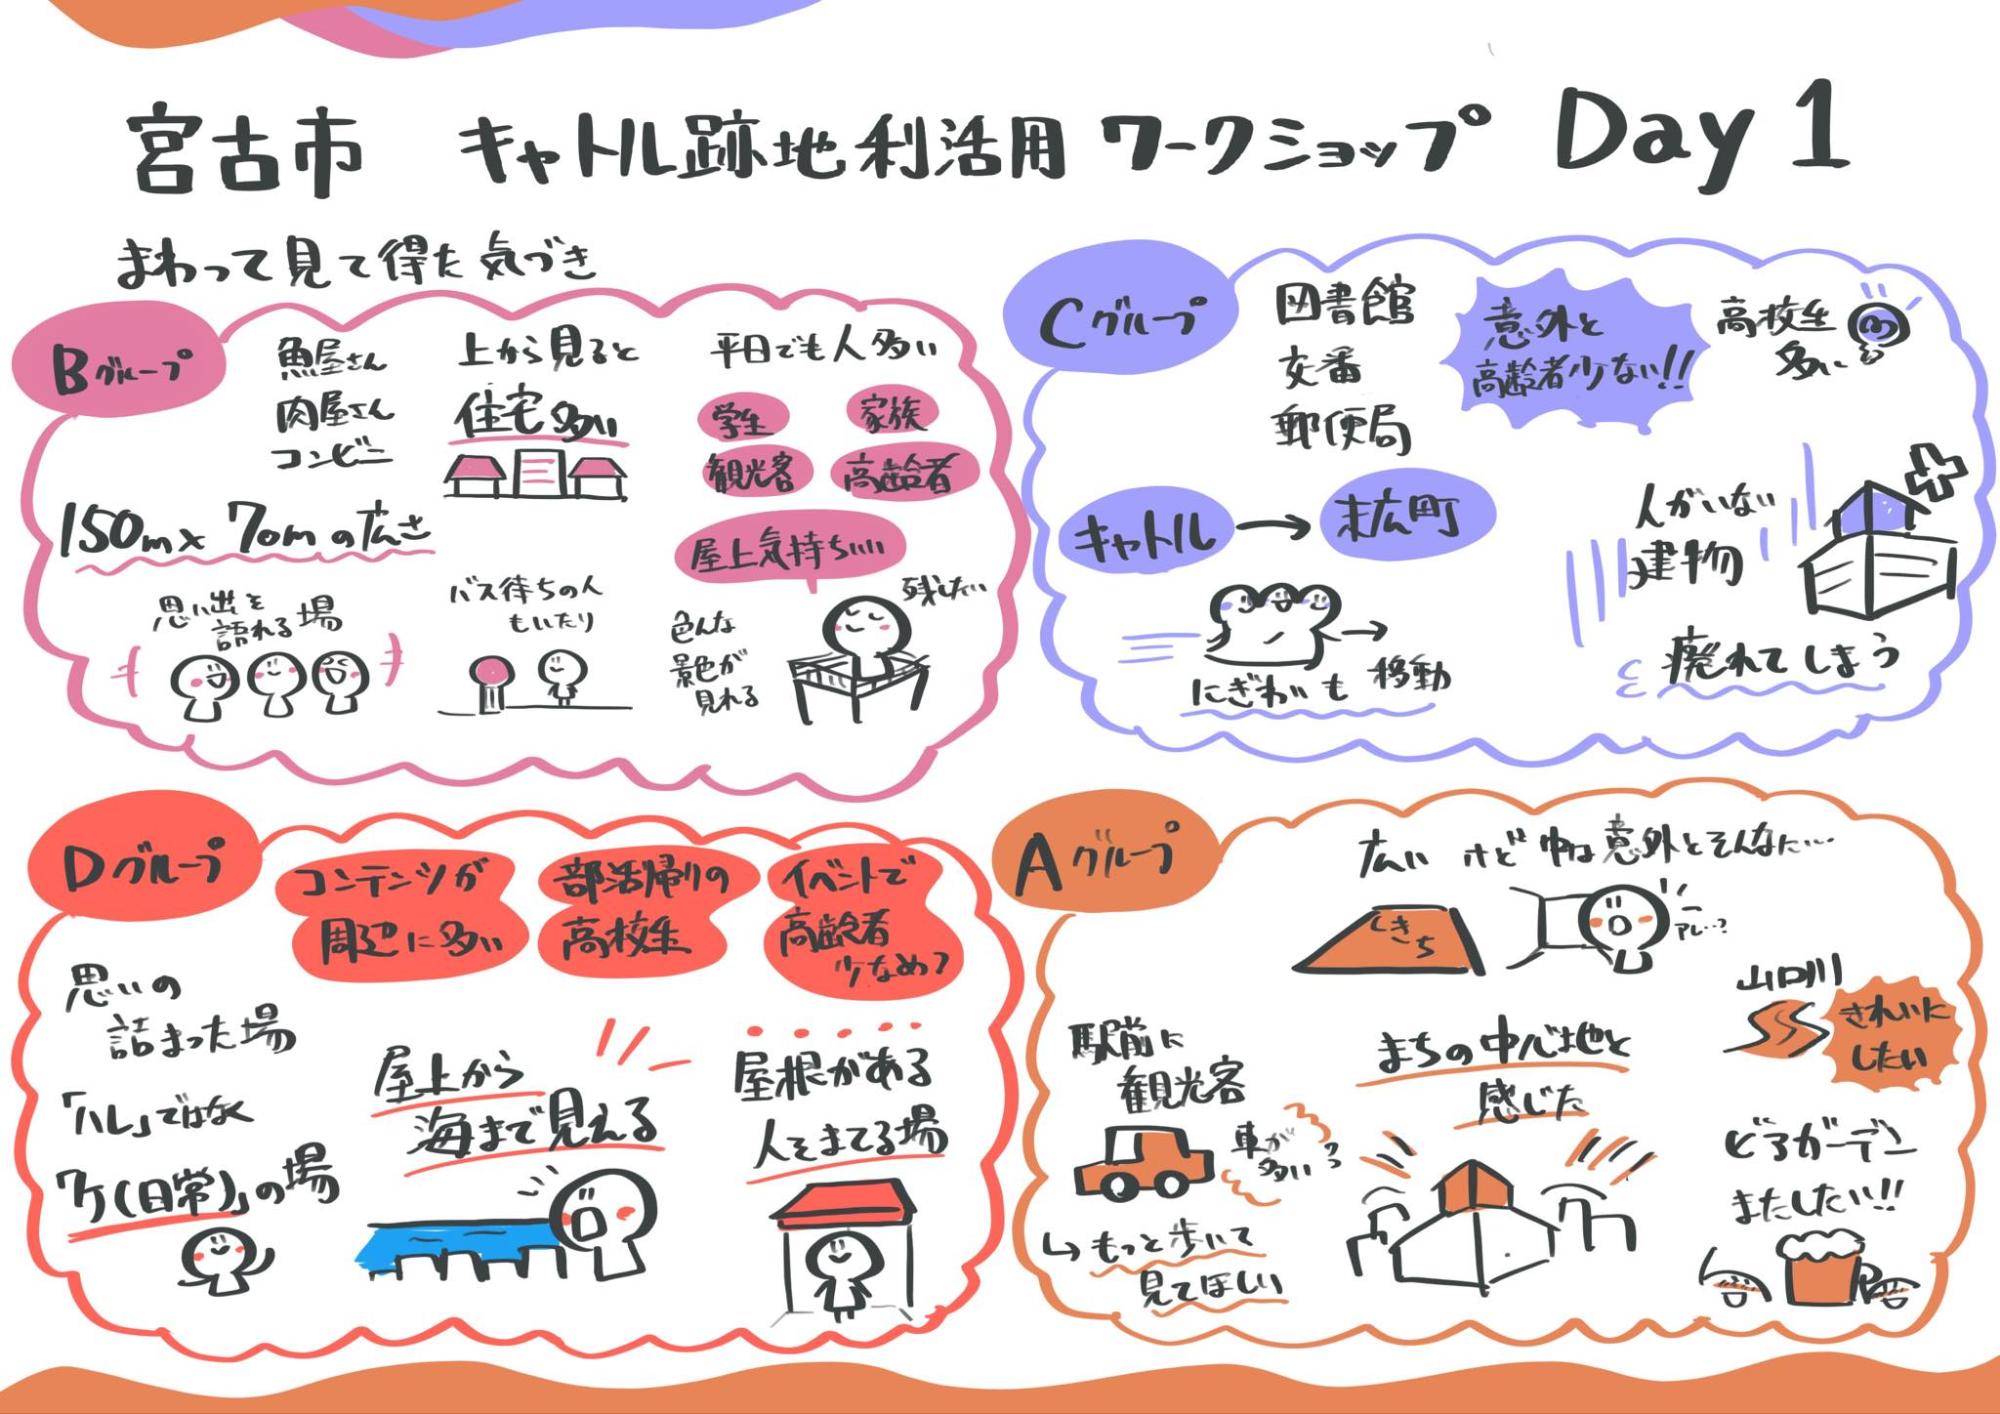 宮古市 キャトル跡地利活用 ワークショップ Day 1
まわって見て得た気づき
Bグループ
魚屋さん
肉屋さん
コンビニ
上から見ると
住宅多い
平日でも人多い
学生
家族
観光客
高齢者
150m×70mの広さ
屋上気持ちいい
思い出を
語れる場
バス待ちの人
もいたり
色んな
景色が
見れる
残したい
Cグループ
図書館
交番
郵便局
意外と
高齢者少ない!!
高校生
多い
キャトル→末広町
にぎわいも移動
人がいない
建物
廃れてしまう
Dグループ
コンテンツが
周辺に多い
部活帰りの
高校生
イベントで
高齢者
少なめ?
思いの
詰まった場
「ハレ」ではなく
「ケ(日常)」の場
屋上から
海まで見える
屋根がある
人をまてる場
Aグループ
広いけど中は意外とそんなに…
しきち
アレ…?
山口川
きれいに
したい
駅前に
観光客
車が
多い??
もっと歩いて
見てほしい
まちの中心地と
感じた
どろガーデン
またしたい!!